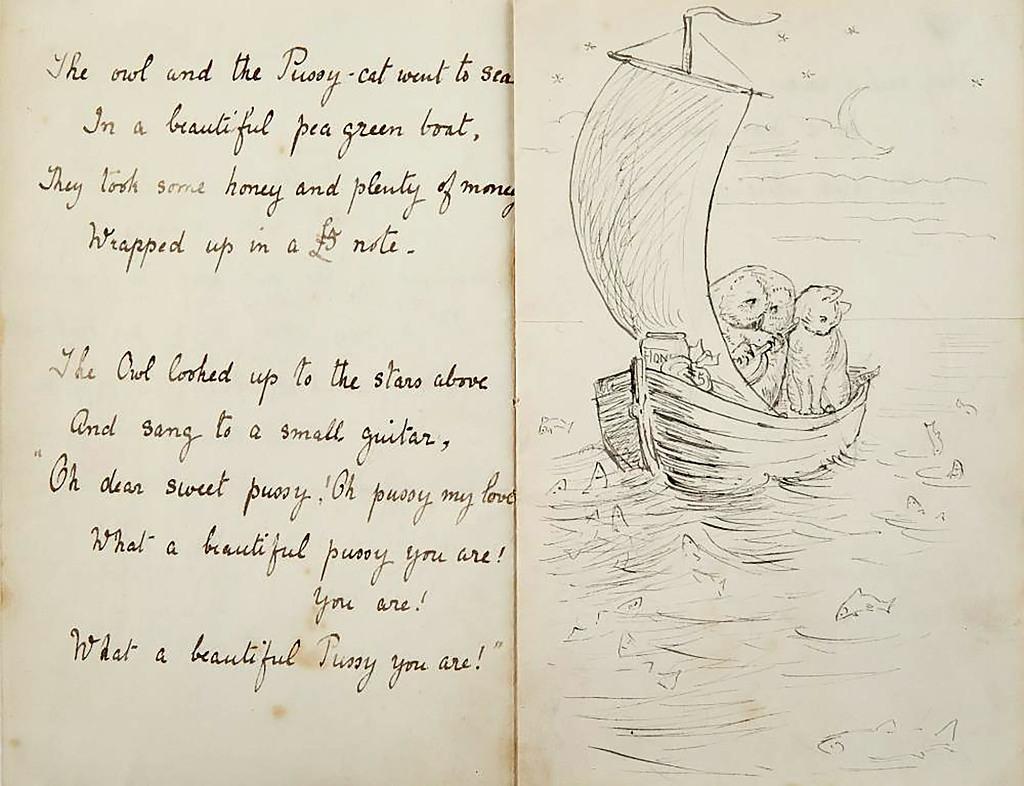 The owl and the Pussy-cat went to sea
In a beautiful pea green boat,
They took some honey and plenty of money
Wrapped up in a £5 note.
The Owl looked up to the stars above
And sang to a small guitar,
"Oh dear sweet pussy! Oh pussy my love
What a beautiful pussy you are!
You are!
What a beautiful Pussy you are!"
HON
£5